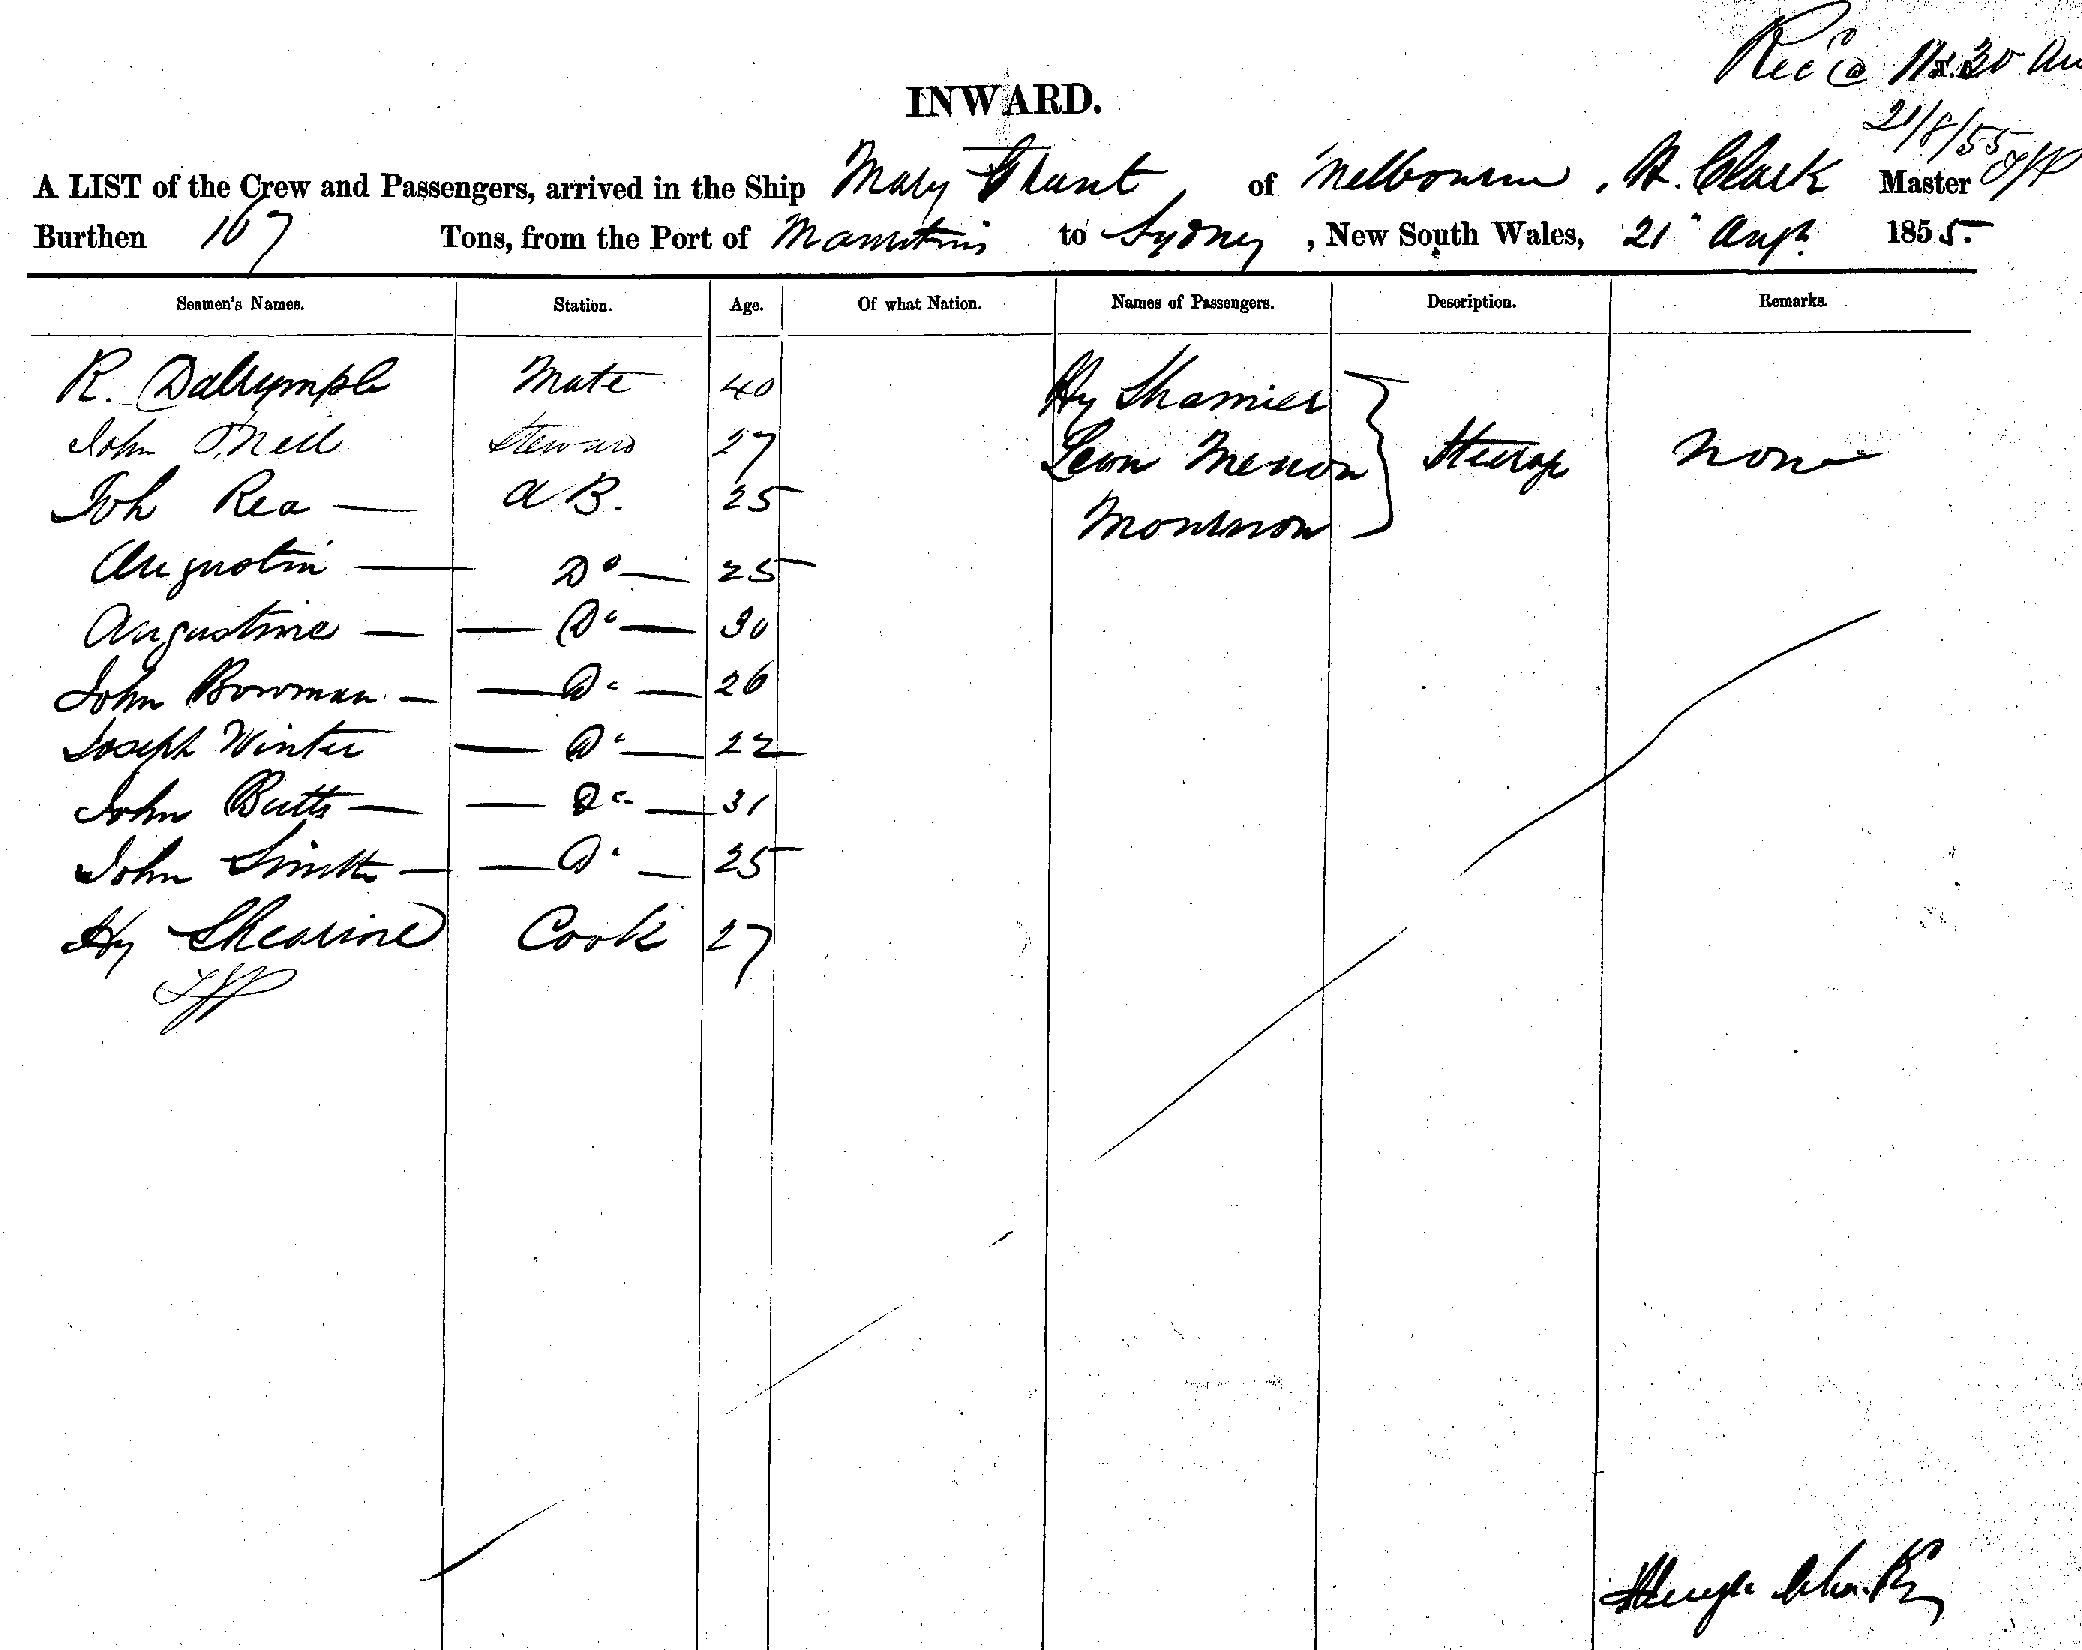 Rec'd 11.30 Am
21/8/55
INWARD.
A LIST of the Crew and Passengers, arrived in the Ship Mary Grant of Melbourne, H. Clark Master
Burthen 167 Tons, from the Port of Mauritius to Sydney, New South Wales, 21" Augt. 1855.
Seamen's Names. Station. Age. Of what Nation. Names of Passengers. Description. Remarks.
R. Dalrymple Mate 40 Hy Shamier
John O'Neil Steward 27 Leon Steerage None
Joh Rea — A B. 25
Augustin — Do — 25
Augustine — — Do — 30
John Bowman — — Do — 26
Joseph Winter — Do — 22
John Butts — — Do — 31
John Smith — — Do — 25
Hy Shearine Cook 27
Hugh Clark